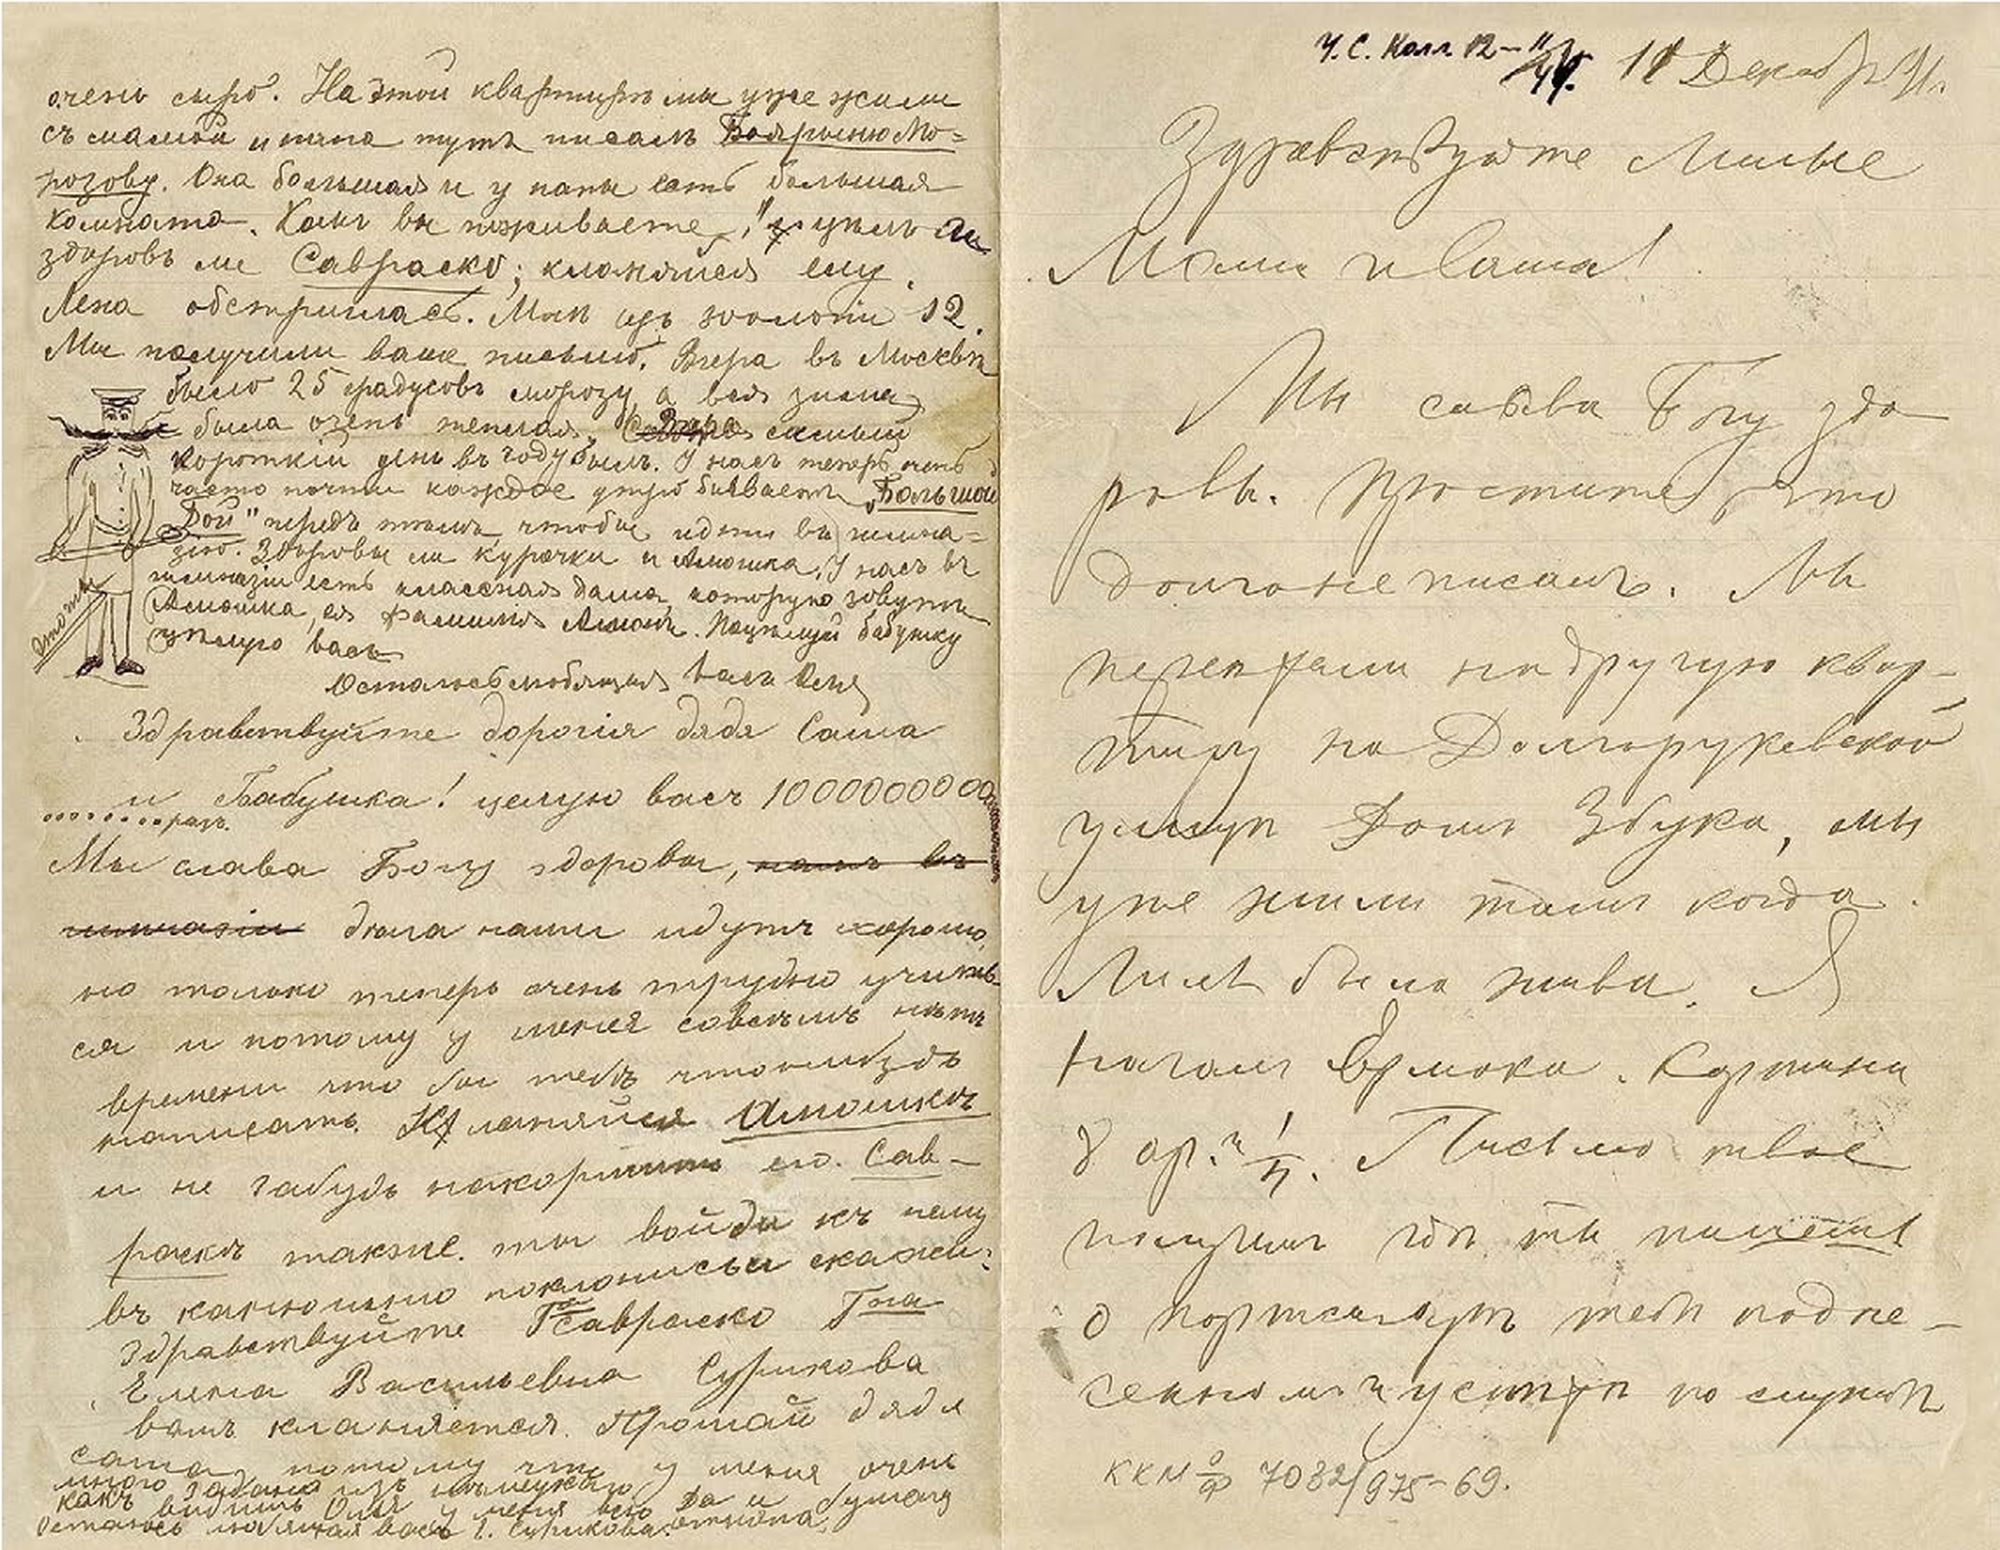 очень сыро. На этой квартирѣ мы уже жили
съ мамой и папа тутъ писалъ Боярыню Мо=
розову. Она большая и у папы есть большая
комната. Какъ вы поживаете,
здоровъ ли Савраско; кланяйся ему.
Лена обстриглась. Мнѣ изъ зоологіи 12.
Мы получили ваше письмо. Вчера въ Москвѣ
было 25 градусовъ морозу, а вся зима
была очень теплая. Вчера самый
короткій день въ году былъ. У насъ теперь очень
часто почти каждое утро бываетъ „Большой
Бой" передъ тѣмъ, чтобы идти въ гимна=
зію. Здоровы ли курочки и Амошка. У насъ въ
гимназіи есть классная дама, которую зовутъ
Амошка, ея фамилія Амонъ. Поцѣлуй бабушку
цѣлую васъ
Остаюсь любящая васъ Оля
это ты
Здравствуйте дорогія дядя Саша
и Бабушка! целую васъ 1000000000
разъ.
Мы слава Богу здоровы, нашъ въ
гимназіи дѣла наши идутъ хорошо,
но только теперь очень трудно учить-
ся и потому у меня совсѣмъ нѣтъ
времени что бы тебѣ что нибудь
написать. Кланяйся Амошкѣ
и не забудь накормить его. Сав-
раскѣ также. ты войди къ нему
въ конюшню поклонись и скажи:
Здравствуйте Савраско Гжа
Елена Васильевна Сурикова
вамъ кланяется. Прощай дядя
Саша, потому что у меня очень
много задано изъ
какъ видишь Оля у меня всю да и бумагу
Остаюсь любящая васъ Е. Сурикова. отняла.
Ч. С. Колл 12-II/44. 11 Декабря 91 г.
Здравствуйте Милые
Мама и Саша!
Мы слава Богу здо
ровы. Простите, что
долго не писалъ. Мы
переѣхали на другую квар-
тиру на Долгоруковской
улицѣ Домъ Збука, мы
уже жили тамъ когда
Лиля была жива. Я
началъ Ермака. Картина
8 ар. и 1/4. Письмо твое
получилъ гдѣ ты пишешь
о портсигарѣ тебѣ подне-
сенномъ и устрѣ по случаю
ККМ о/ф 7032/975-69.